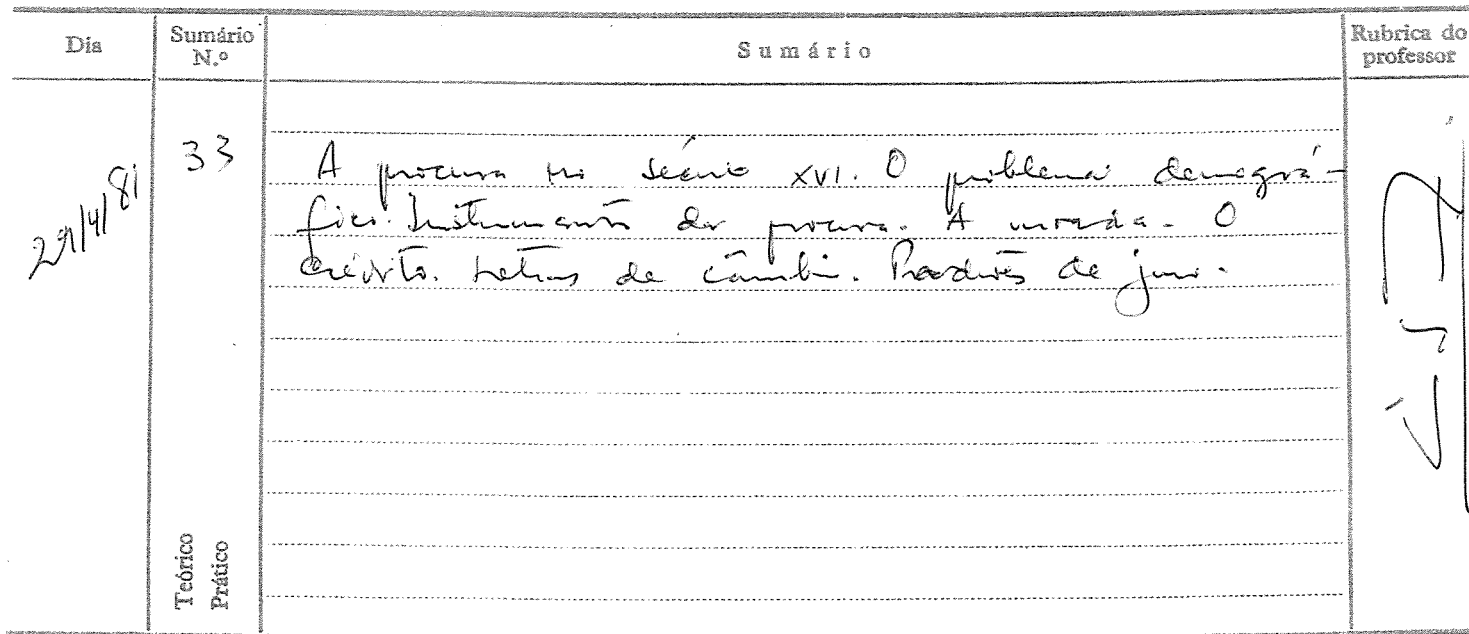 Dia
Sumário N.º
Sumário
Rubrica do professor
29/4/81
33
A procura no século XVI. O problema demográ-
fico. Instrumentos da procura. A moeda. O
crédito. Letras de câmbio. Padrões de juro.
Teórico
Prático